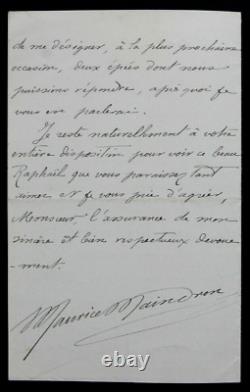 de me désigner, à la plus prochaine
occasion, deux épées dont nous
puissions répondre, après quoi je
vous en parlerai.
Je reste naturellement à votre
entière disposition pour voir ce beau
Raphaël que vous paraissez tant
aimer et je vous prie d'agréer,
Monsieur l'assurance de mon
sincère et bien respectueux dévoue
-ment.
Maurice Maindron